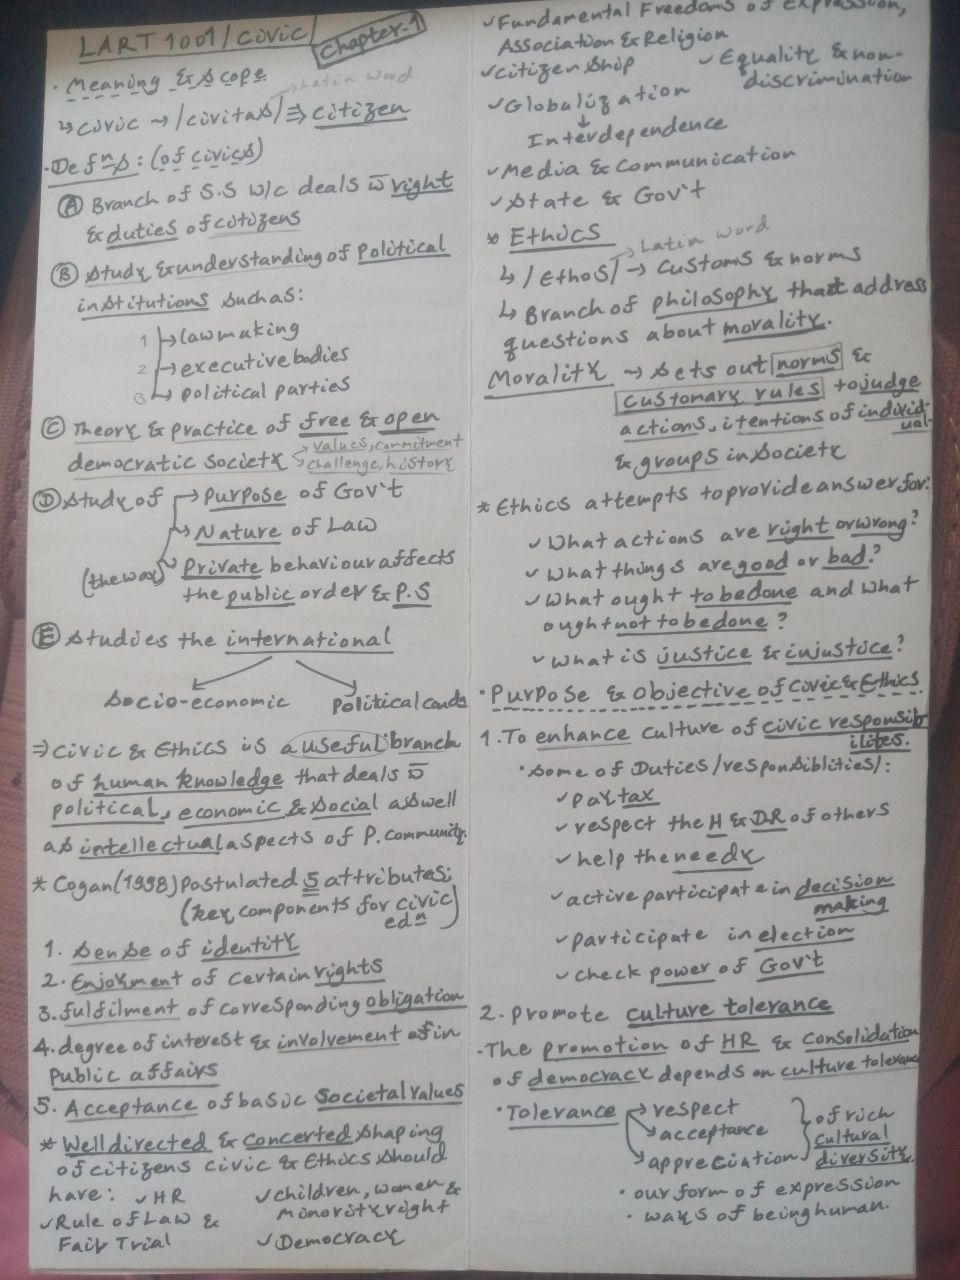 LART 1001/civic/
Chapter-1
· Meaning & scope
Latin word
↳ civic → /civitas/ ⇒ citizen
· Defns: (of civics)
Ⓐ Branch of S.S w/c deals w̄ right
& duties of citizens
Ⓑ Study & understanding of Political
institutions such as:
1 → lawmaking
2 → executive bodies
3 → political parties
Ⓒ Theory & practice of free & open
democratic society
→ values, commitment
→ challenge, history
Ⓓ Study of → Purpose of Gov't
→ Nature of Law
(the way) → Private behaviour affects
the public order & P.S
Ⓔ Studies the international
Socio-economic Political conds
⇒ Civic & Ethics is a useful branch
of human knowledge that deals w̄
political, economic & social aswell
as intellectual aspects of P. community.
* Cogan (1998) postulated 5 attributes;
(key components for civic
edn)
1. Sense of identity
2. Enjoyment of certain rights
3. fulfilment of corresponding obligation
4. degree of interest & involvement in
Public affairs
5. Acceptance of basic Societal values
* Well directed & concerted shaping
of citizens civic & Ethics should
have: ✓ HR
✓ Rule of Law &
Fair Trial
✓ children, women &
Minority right
✓ Democracy
✓ Fundamental Freedoms of Expression,
Association & Religion
✓ citizenship
✓ Equality & non-
discrimination
✓ Globalization
↓
Interdependence
✓ Media & communication
✓ State & Gov't
* Ethics
Latin word
↳ /Ethos/ → Customs & norms
↳ Branch of philosophy that address
questions about morality.
Morality → Sets out norms &
customary rules to judge
actions, itentions of individ-
ual
& groups in society
* Ethics attempts to provide answer for:
✓ What actions are right or wrong?
✓ What things are good or bad?
✓ What ought to be done and what
ought not to be done?
✓ What is justice & injustice?
· Purpose & objective of civic & Ethics
1. To enhance culture of civic responsib
ilites.
· Some of Duties/responsiblities/:
✓ pay tax
✓ respect the H & DR of others
✓ help the needy
✓ active participate in decision
making
✓ participate in election
✓ check power of Gov't
2. Promote culture tolerance
· The promotion of HR & consolidation
of democracy depends on culture tolerance
· Tolerance → respect
→ acceptance
→ appreciation
of rich
cultural
diversity.
· our form of expression
· ways of being human.